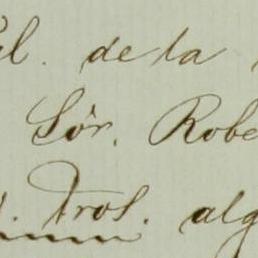 de la
Sör. Robe
Tros. alg